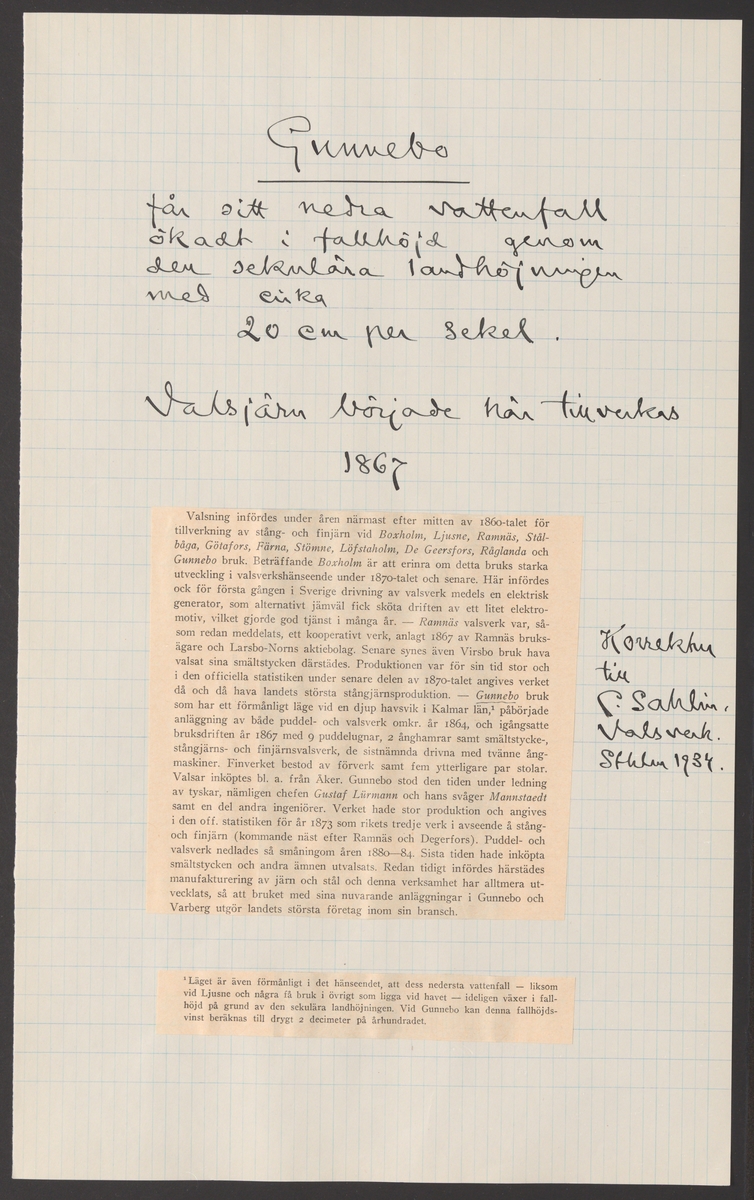 Gunnebo
får sitt nedra vattenfall
ökadt i fallhöjd genom
den sekulära landhöjningen
med cirka
20 cm per sekel.
Valsjärn började här tillverkas
1867
Valsning infördes under åren närmast efter mitten av 1860-talet för
tillverkning av stång- och finjärn vid Boxholm, Ljusne, Ramnäs, Stål-
båga, Götafors, Färna, Stömne, Löfstaholm, De Geersfors, Råglanda och
Gunnebo bruk. Beträffande Boxholm är att erinra om detta bruks starka
utveckling i valsverkshänseende under 1870-talet och senare. Här infördes
ock för första gången i Sverige drivning av valsverk medels en elektrisk
generator, som alternativt jämväl fick sköta driften av ett litet elektro-
motiv, vilket gjorde god tjänst i många år. — Ramnäs valsverk var, så-
som redan meddelats, ett kooperativt verk, anlagt 1867 av Ramnäs bruks-
ägare och Larsbo-Norns aktiebolag. Senare synes även Virsbo bruk hava
valsat sina smältstycken därstädes. Produktionen var för sin tid stor och
i den officiella statistiken under senare delen av 1870-talet angives verket
då och då hava landets största stångjärnsproduktion. — Gunnebo bruk
som har ett förmånligt läge vid en djup havsvik i Kalmar län,¹ påbörjade
anläggning av både puddel- och valsverk omkr. år 1864, och igångsatte
bruksdriften år 1867 med 9 puddelugnar, 2 ånghamrar samt smältstycke-,
stångjärns- och finjärnsvalsverk, de sistnämnda drivna med tvänne ång-
maskiner. Finverket bestod av förverk samt fem ytterligare par stolar.
Valsar inköptes bl. a. från Åker. Gunnebo stod den tiden under ledning
av tyskar, nämligen chefen Gustaf Lürmann och hans svåger Mannstaedt
samt en del andra ingeniörer. Verket hade stor produktion och angives
i den off. statistiken för år 1873 som rikets tredje verk i avseende å stång-
och finjärn (kommande näst efter Ramnäs och Degerfors). Puddel- och
valsverk nedlades så småningom åren 1880—84. Sista tiden hade inköpta
smältstycken och andra ämnen utvalsats. Redan tidigt infördes härstädes
manufakturering av järn och stål och denna verksamhet har alltmera ut-
vecklats, så att bruket med sina nuvarande anläggningar i Gunnebo och
Varberg utgör landets största företag inom sin bransch.
Korrektur
till
C. Sahlin.
Valsverk.
Sthlm 1934.
¹ Läget är även förmånligt i det hänseendet, att dess nedersta vattenfall — liksom
vid Ljusne och några få bruk i övrigt som ligga vid havet — ideligen växer i fall-
höjd på grund av den sekulära landhöjningen. Vid Gunnebo kan denna fallhöjds-
vinst beräknas till drygt 2 decimeter på århundradet.